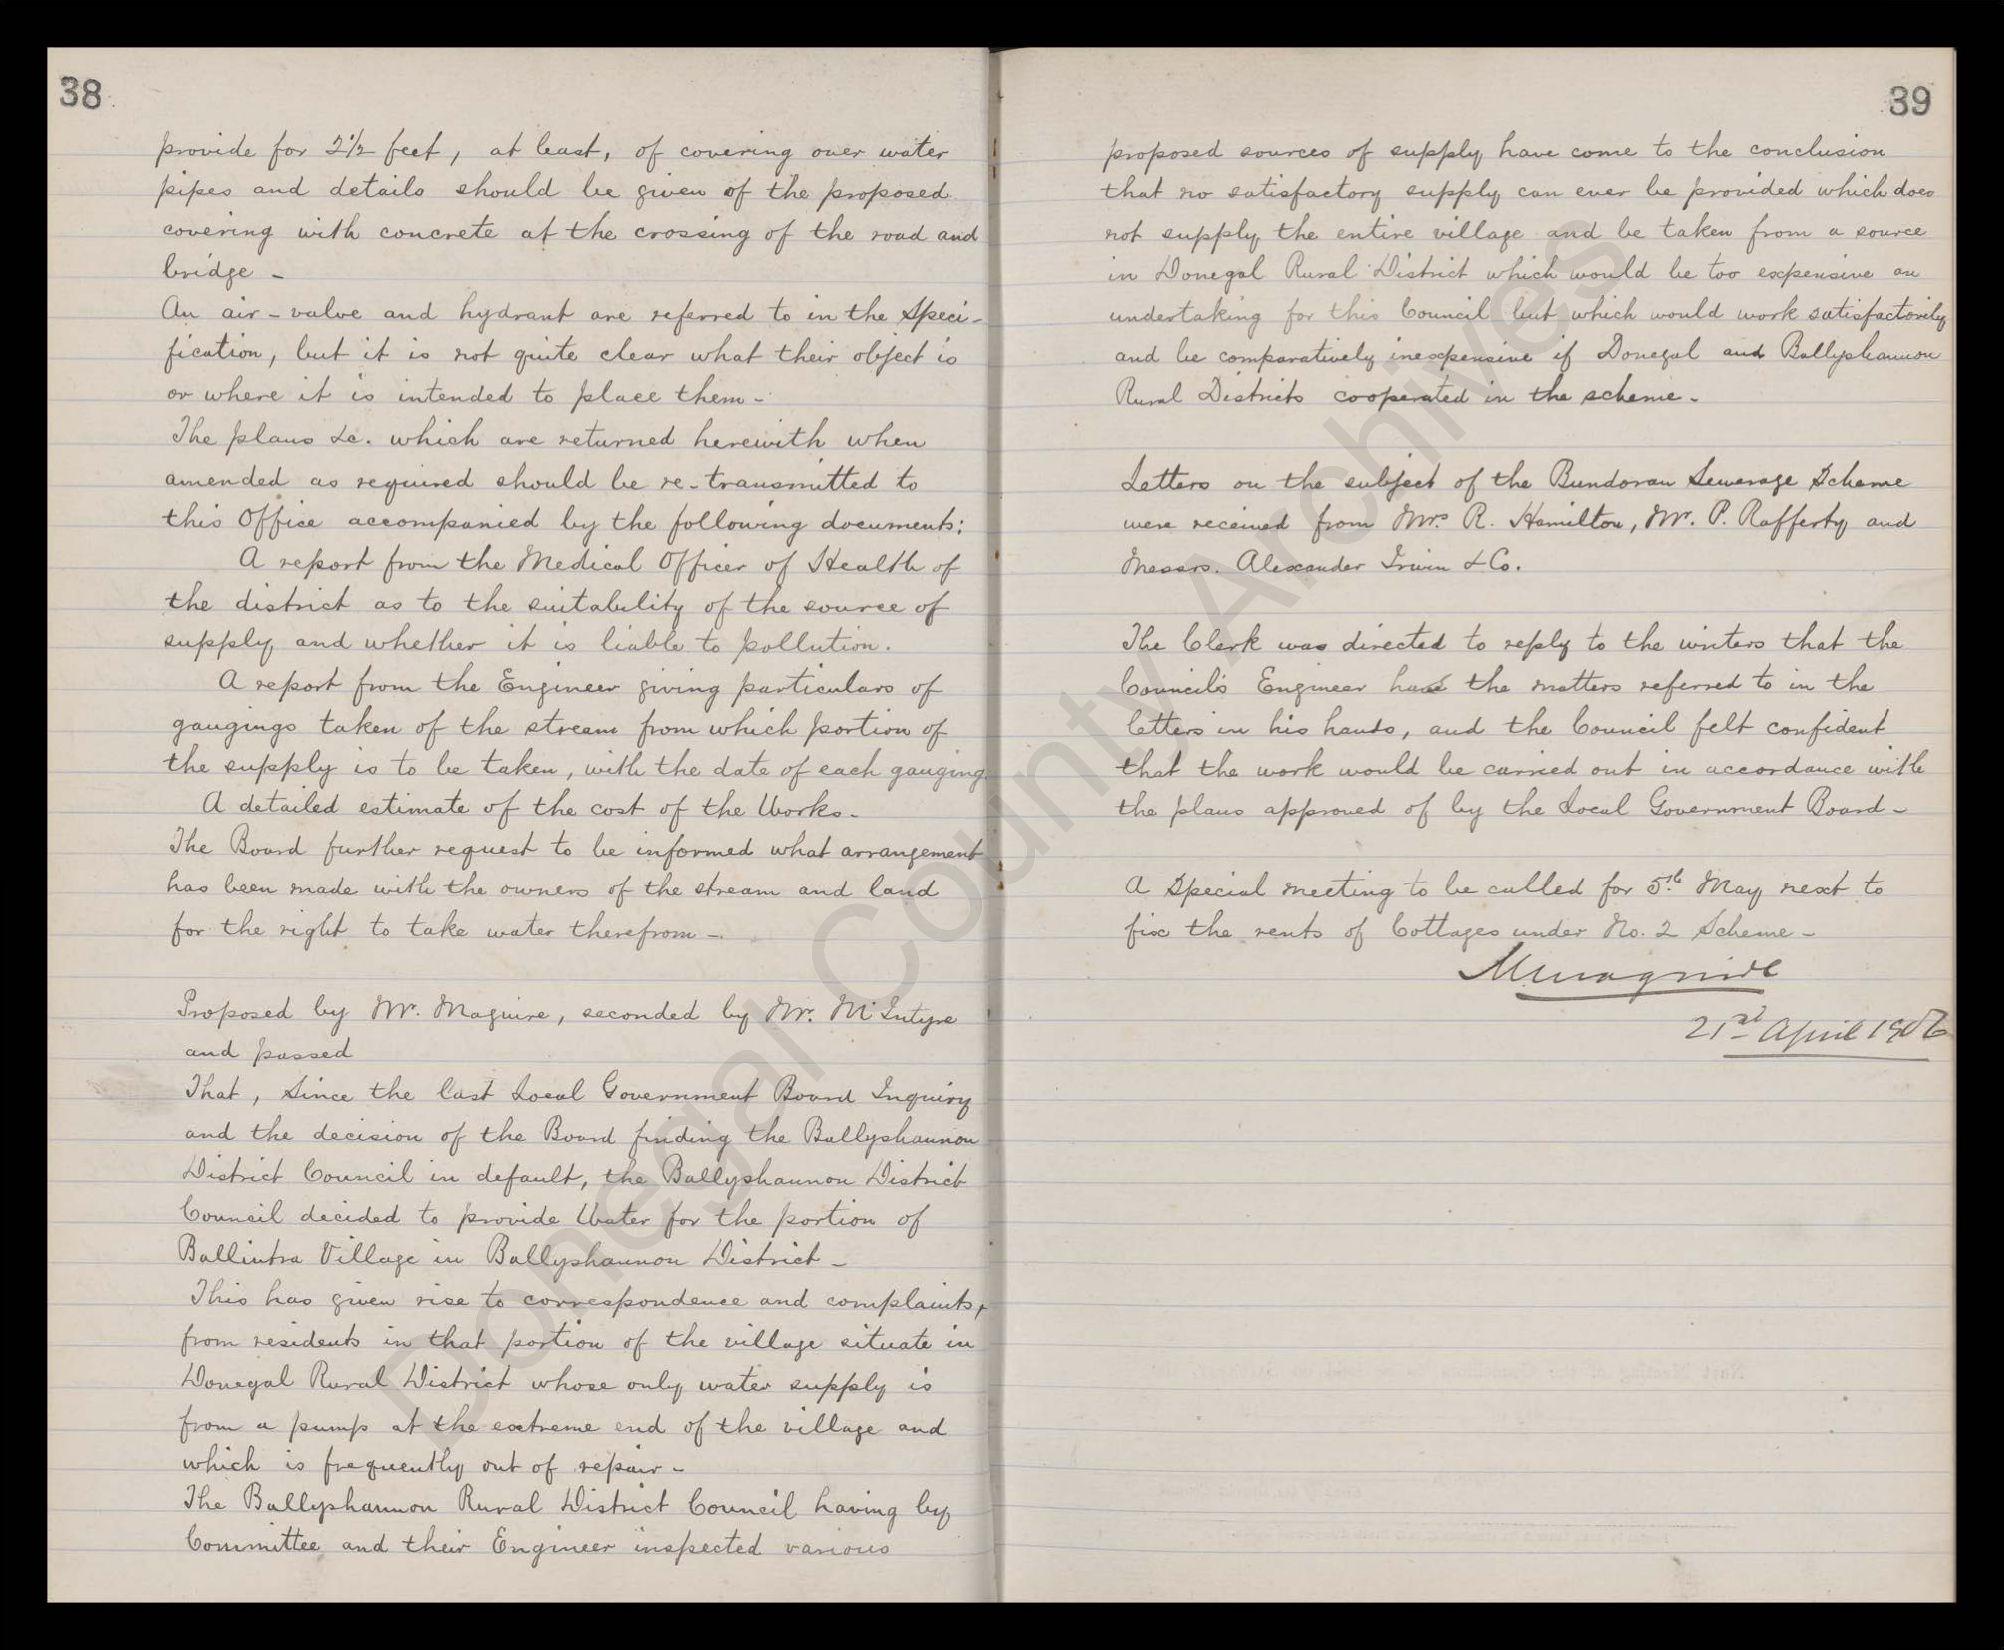 38
provide for 2½ feet, at least, of covering over water
pipes and details should be given of the proposed
covering with concrete at the crossing of the road and
bridge -
An air-valve and hydrant are referred to in the Speci-
fication, but it is not quite clear what their object is
or where it is intended to place them -
The plans &c. which are returned herewith when
amended as required should be re-transmitted to
this Office accompanied by the following documents:
A report from the Medical Officer of Health of
the district as to the suitability of the source of
supply and whether it is liable to pollution.
A report from the Engineer giving particulars of
gaugings taken of the stream from which portion of
the supply is to be taken, with the date of each gauging
A detailed estimate of the cost of the Works -
The Board further request to be informed what arrangement
has been made with the owners of the stream and land
for the right to take water therefrom -
Proposed by Mr. Maguire, seconded by Mr. McIntyre
and passed
That, Since the last Local Government Board Inquiry
and the decision of the Board finding the Ballyshannon
District Council in default, the Ballyshannon District
Council decided to provide Water for the portion of
Ballintra Village in Ballyshannon District -
This has given rise to correspondence and complaints,
from residents in that portion of the village situate in
Donegal Rural District whose only water supply is
from a pump at the extreme end of the village and
which is frequently out of repair -
The Ballyshannon Rural District Council having by
Committee and their Engineer inspected various
39
proposed sources of supply have come to the conclusion
that no satisfactory supply can ever be provided which does
not supply the entire village and be taken from a source
in Donegal Rural District which would be too expensive an
undertaking for this Council but which would work satisfactorily
and be comparatively inexpensive if Donegal and Ballyshannon
Rural Districts cooperated in the scheme -
Letters on the subject of the Bundoran Sewerage Scheme
were received from Mrs R. Hamilton, Mr. P. Rafferty and
Messrs. Alexander Irwin & Co.
The Clerk was directed to reply to the writers that the
Council's Engineer had the matters referred to in the
letters in his hands, and the Council felt confident
that the work would be carried out in accordance with
the plans approved of by the Local Government Board -
A Special meeting to be called for 5th May next to
fix the rents of Cottages under No. 2 Scheme -
21st April 1906
Donegal County Archives